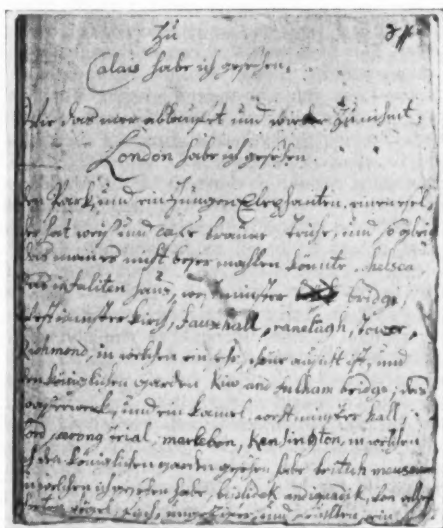 Zu
Calais habe ich gesehen,
Wie das meer ablaufet und wieder zunimt,
London habe ich gesehen.
den Park, und ein jungen Elephanten, einen esel,
der hat weiß und cafee braune striche, und so gleich
das man es nicht beser mahlen könnte. chelsea
das infaliten haus, westminster bridge,
westminster kirch, Fauxhall, ranelagh, tower,
Richmond, in welchen ein sehr schöne ausicht ist, und
den königlichen garden Kiw and fulham bridge; das
wasserwerck, und ein kamel. westminster hall,
trial, marleben, Kensington, in welchen
ich den königlichen garden gesehen habe british
in welchen ich gesehen habe, antiquitik, von
vögel, fisch, ungeziffer, und früchten, ein